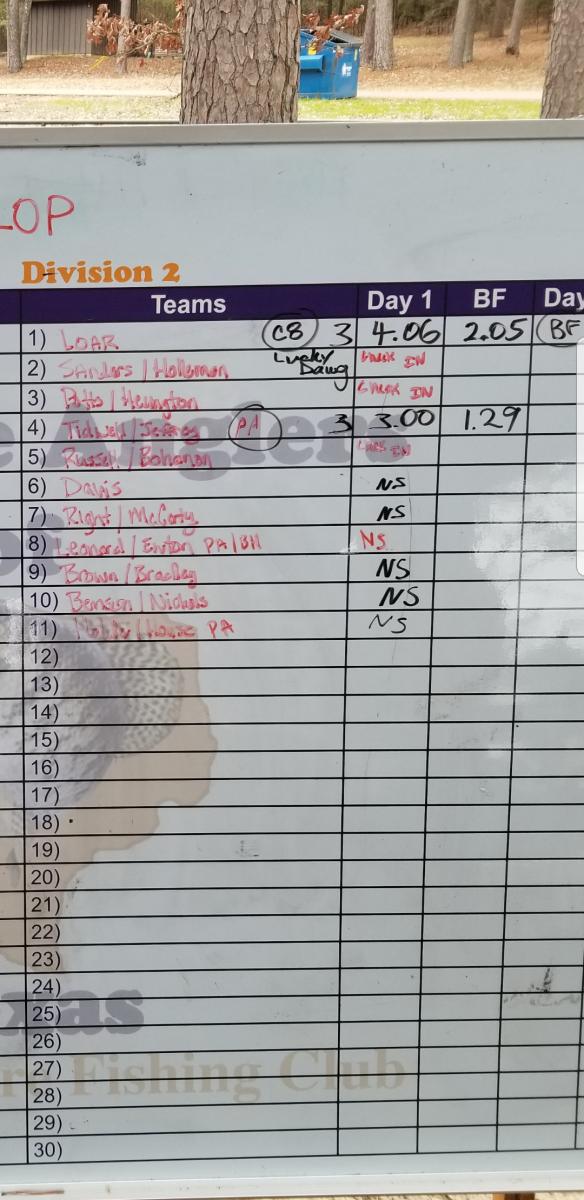 LOP
Division 2
Teams Day 1 BF Day
1) LOAR C8 3 4.06 2.05 BF
2) Sanders / Holloman Lucky Dawg Check IN
3) Potts / Herington Check IN
4) Tidwell / Jeffrey PA 3 3.00 1.29
5) Russell / Bohanon Check IN
6) Davis NS
7) Right / McCarty NS
8) Leonard / Enton PA/BH NS
9) Brown / Bradley NS
10) Benson / Nichols NS
11) House PA NS
12)
13)
14)
15)
16)
17)
18)
19)
20)
21)
22)
23)
24)
25)
26)
27)
28)
29)
30)
Anglers
of
xas
Fishing Club